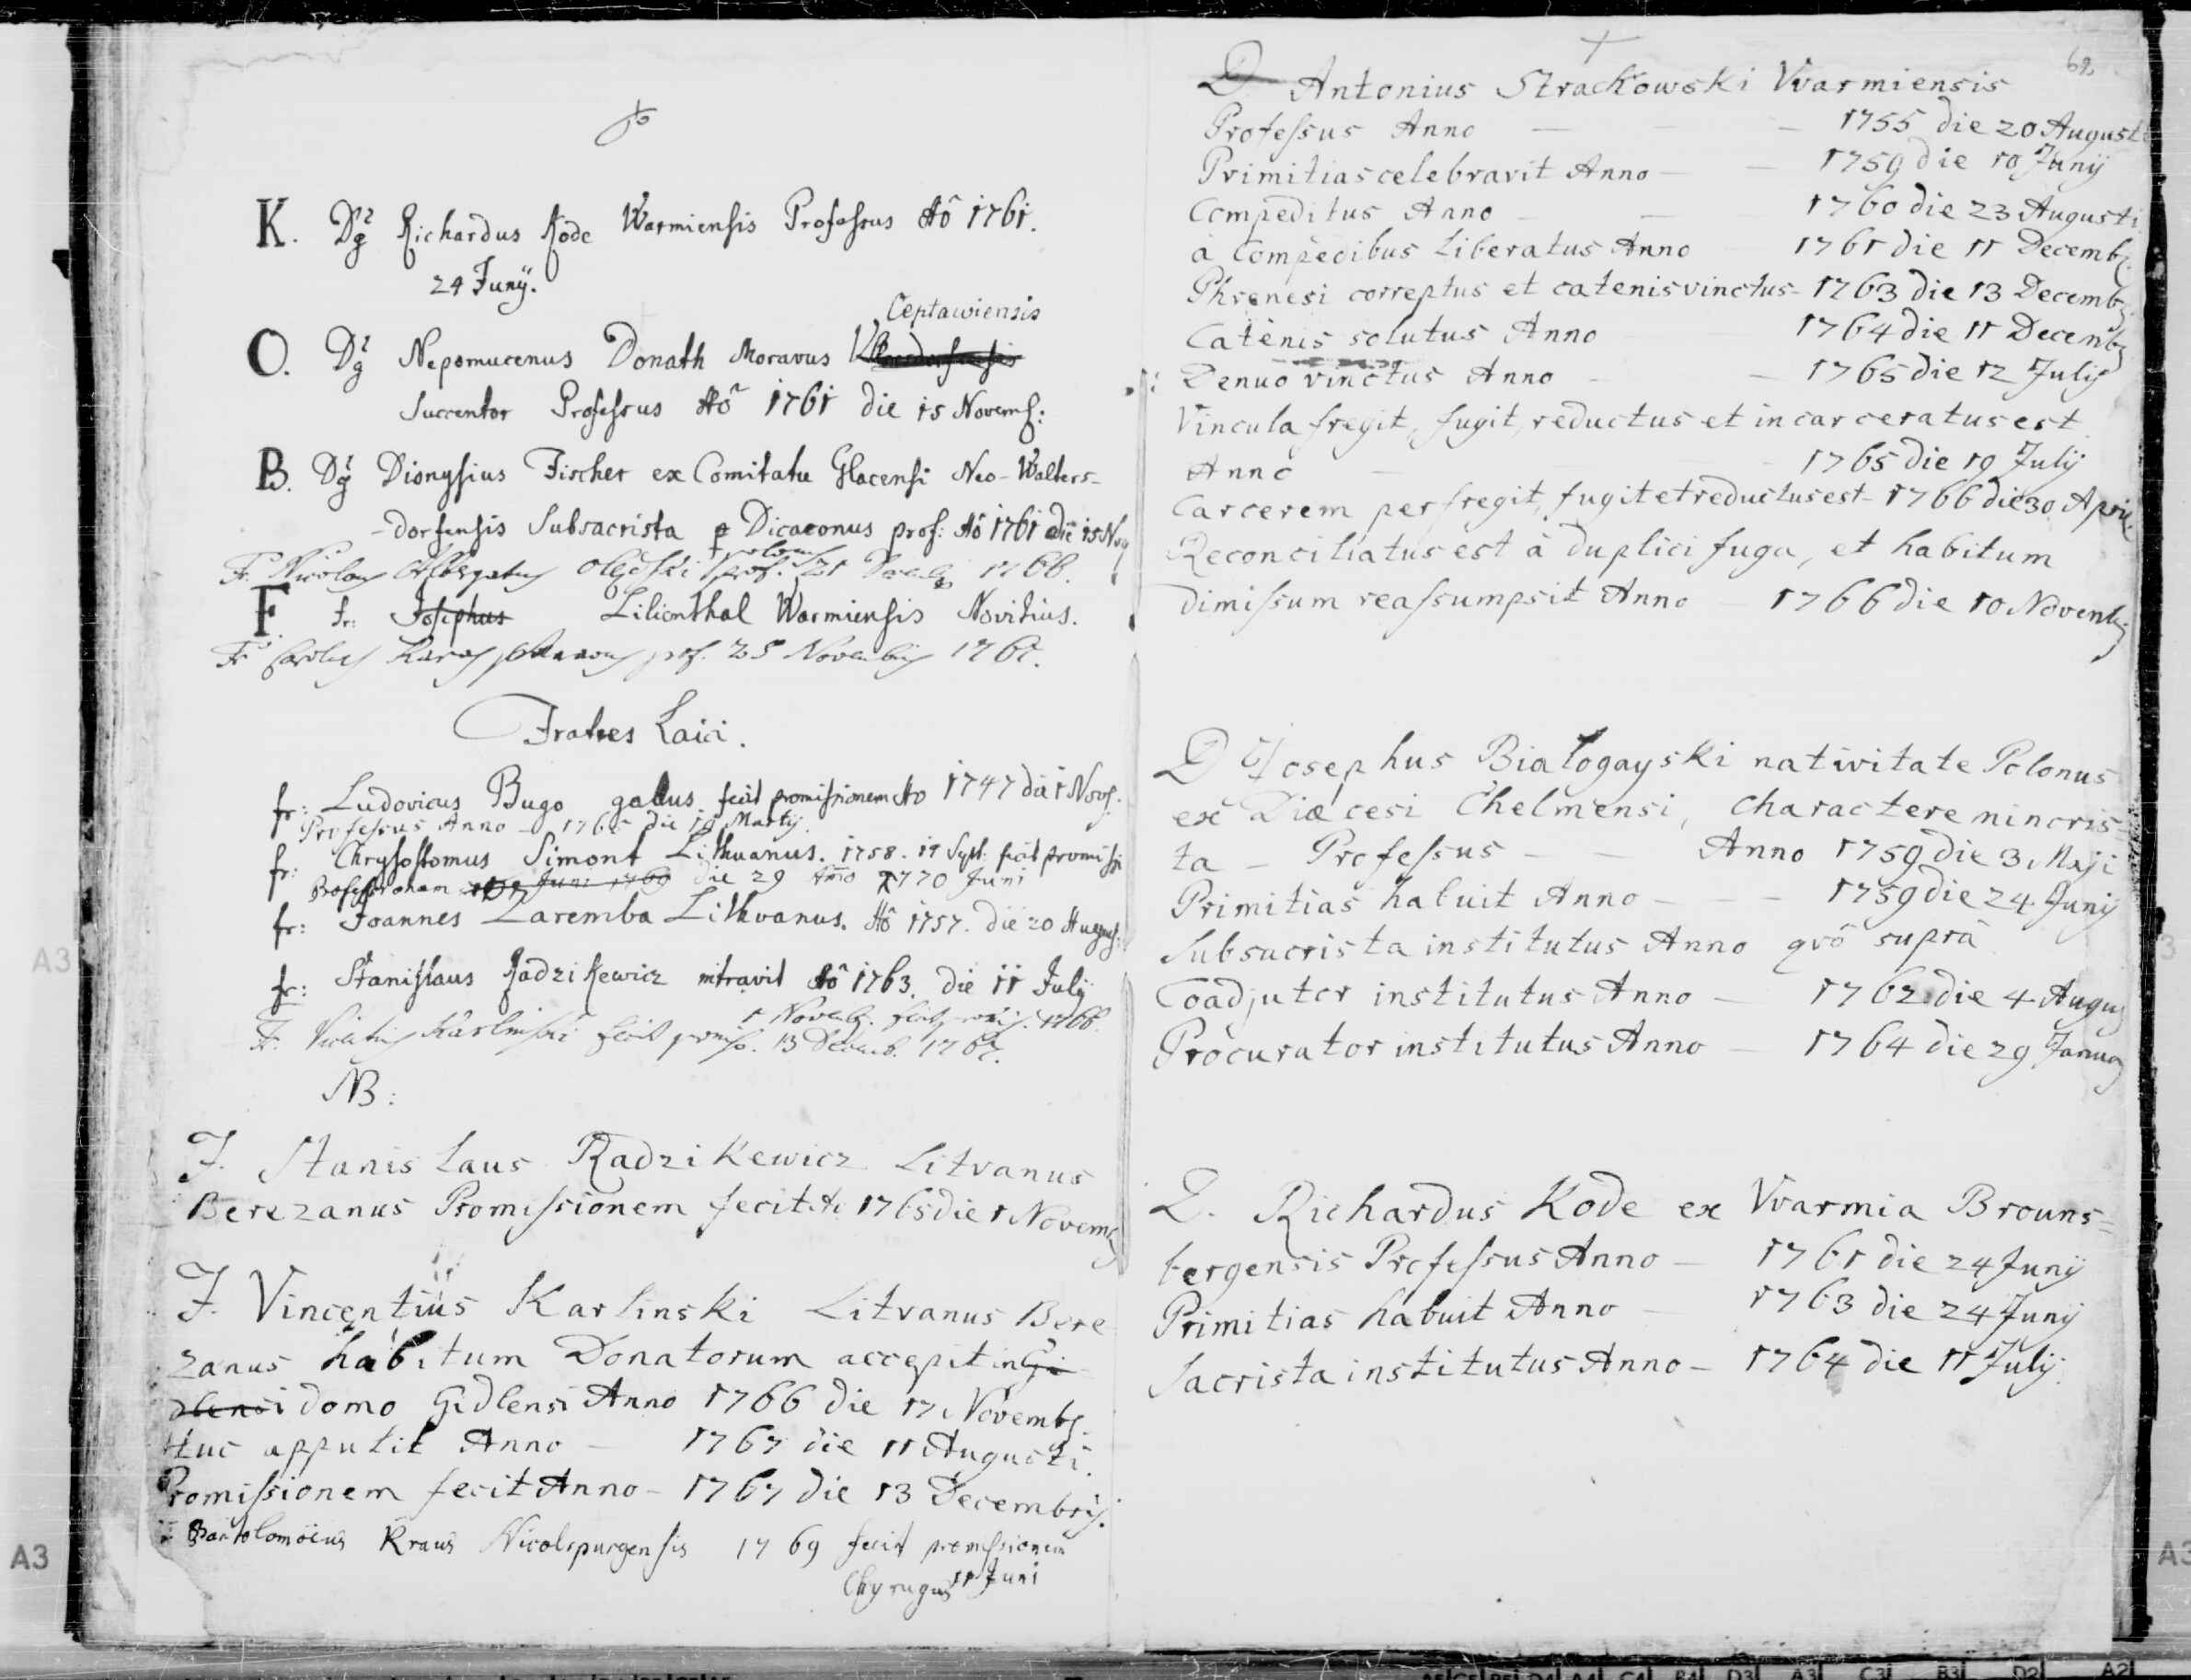 K. Dg Richardus Kode Warmiensis Professus Aô 1761.
24 Junÿ.
Ceptawiensis
O. Dg Nepomucenus Donath Moravus
Succentor Professus Aô 1761 die 15 Novemb:
B. Dg Dionysius Fischer ex Comitatu Glacensi Neo-Walters-
-dorfensis Subsacrista Diaconus prof: Aô 1761 die 15 Nov
F. Nicolaus Albergatus prof. 21 1766.
F fr: Josephus Lilienthal Warmiensis Novitius.
Fr Carolus prof. 25 Novembris 1767.
Fratres Laici.
fr: Ludovicus Bugo gallus fecit promissionem Ao 1747 die 1 Novb.
Professus Anno - 1765 die 19 Martij.
fr: Chrysostomus Simont Lithuanus. 1758. 19 Sept. fecit promissi
Professionem die 29 Anno 1770 Juni
fr: Joannes Zaremba Lithvanus. Aô 1757. die 20 August:
fr: Stanislaus Radzikewicz intravit Aô 1763. die 11 Julij
1 Novemb. fecit promis. 1766.
F. Vincentius Karlinski fecit promiss. 13 Decemb. 1767.
NB:
F. Stanislaus Radzikewicz Litvanus
Berezanus Promissionem fecit Ao 1765 die 1 Novemb
F. Vincentius Karlinski Litvanus Bere
zanus habitum Donatorum accepit in Gi
dlensi domo Gidlensi Anno 1766 die 17 Novembr.
Huc appulit Anno — 1767 die 11 Augusti.
Promissionem fecit Anno - 1767 die 13 Decembris.
Bartolomöeus Kraus Nicolspurgensis 1769 fecit promissionem
Chyrugus 11 Juni
69.
D Antonius Strachowski Warmiensis
Professus Anno — — — 1755 die 20 Augusti
Primitias celebravit Anno — — 1759 die 10 Junij
Compeditus Anno — — 1760 die 23 Augusti
à Compedibus liberatus Anno 1761 die 11 Decemb.
Phrenesi correptus et catenis vinctus - 1763 die 13 Decemb.
Catenis solutus Anno 1764 die 11 Decemb
Denuo vinctus Anno - — 1765 die 12 Julij
Vincula fregit, fugit, reductus et incarceratus est
Anno — — 1765 die 19 Julij
Carcerem perfregit, fugit et reductus est - 1766 die 30 April
Reconciliatus est à duplici fuga, et habitum
dimissum reassumpsit Anno 1766 die 10 Novemb
D Josephus Białogayski nativitate Polonus
ex Diæcesi Chelmensi, charactere mincris=
ta — Professus — — Anno 1759 die 3 Maji
Primitias habuit Anno — — — 1759 die 24 Junij
Subsacrista institutus Anno qvô suprà
Coadjutor institutus Anno — 1762 die 4 Augus
Procurator institutus Anno — 1764 die 29 Janua
D. Richardus Kode ex Warmia Brouns=
bergensis Professus Anno — 1761 die 24 Junij
Primitias habuit Anno — 1763 die 24 Junij
Sacrista institutus Anno — 1764 die 11 Julij.
A3
A3